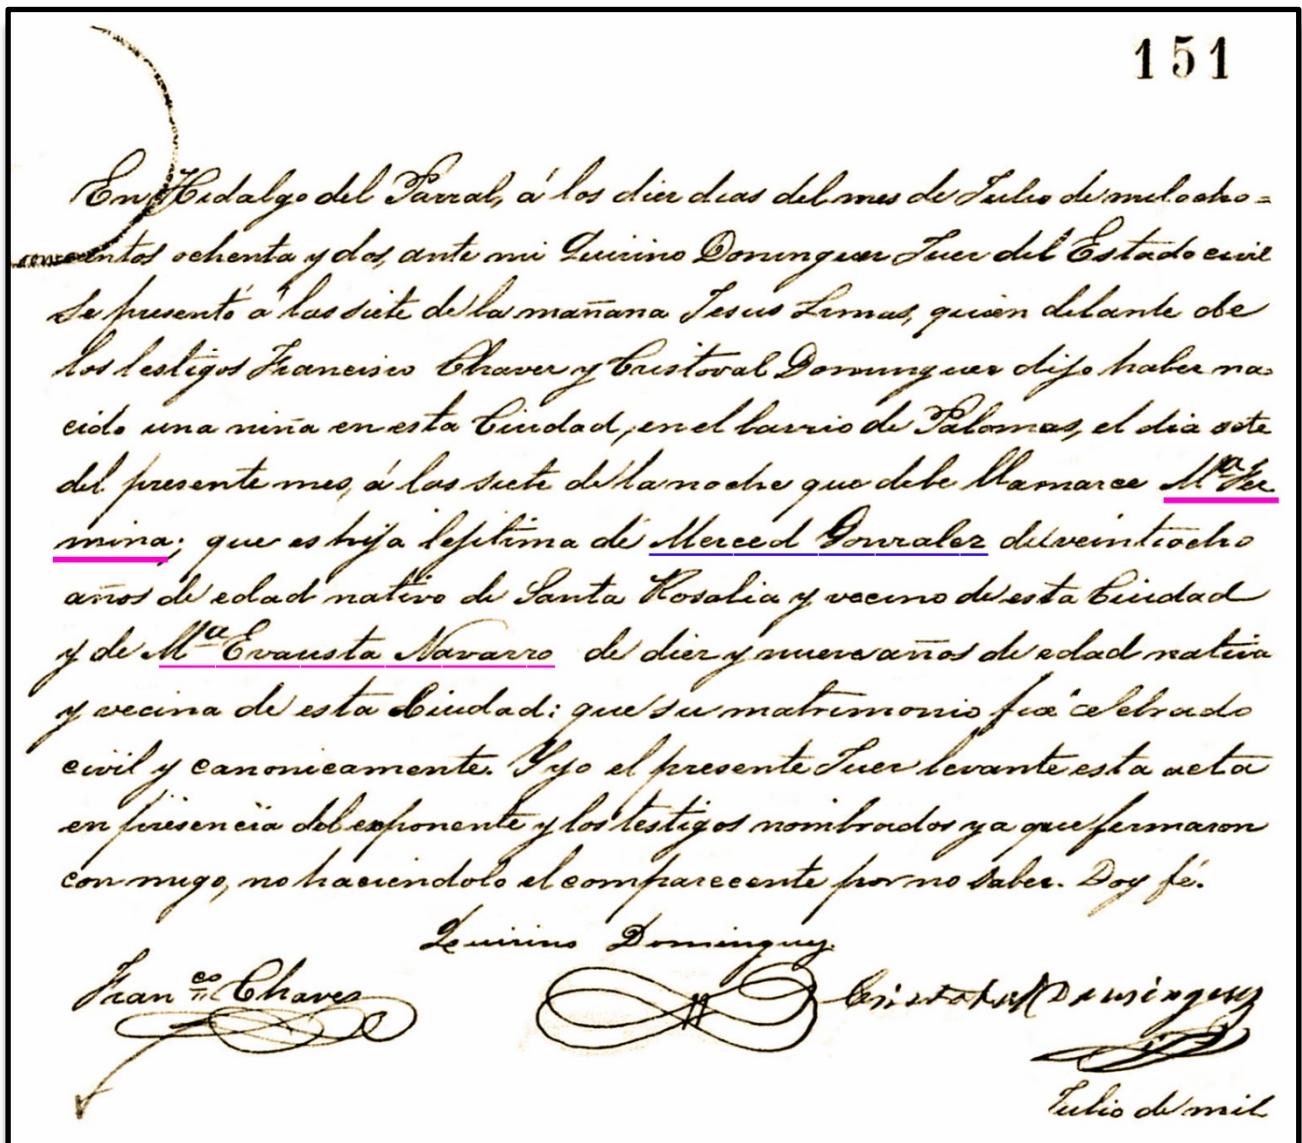 151
En Hidalgo del Parral, á los diez dias del mes de Julio de mil ocho=
cientos ochenta y dos, ante mi Quirino Dominguez Juez del Estado civil
se presentó á las siete de la mañana Jesus Limas, quien delante de
los testigos Francisco Chavez y Cristoval Dominguez dijo haber na=
cido una niña en esta Ciudad, en el barrio de Palomas, el dia siete
del presente mes, á las siete de la noche que debe llamarce Mª Fer
mina; que es hija lejitima de Merced Gonzalez de veintiocho
años de edad nativo de Santa Rosalia y vecino de esta Ciudad
y de Mª Evausta Navarro de diez y nueve años de edad nativa
y vecina de esta Ciudad: que su matrimonio fué celebrado
civil y canonicamente. Y yo el presente Juez levante esta acta
en presencia del esponente y los testigos nombrados ya que firmaron
conmigo, no haciendolo el comparecente por no saber. Doy fé.
Quirino Dominguez
Franco Chavez
Cristobal Dominguez
Julio de mil